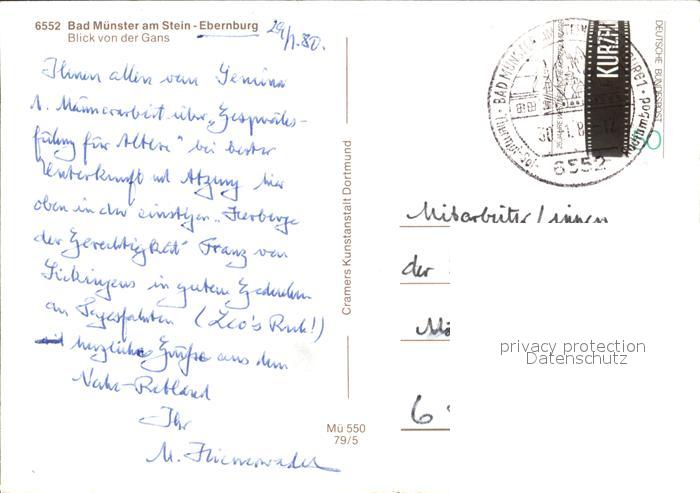 6552 Bad Münster am Stein - Ebernburg 29/1.80.
Blick von der Gans
Ihnen allen vom Seminar
f. Männerarbeit über „Gesprächs-
führung für Ältere“ bei bester
Unterkunft und Atzung hier
oben in der einstigen „Herberge
der Gerechtigkeit“ Franz von
Sickingens in gutem Gedenken
an Tagesfahrten (Leo's Ruh!)
mit herzlichen Grüßen aus dem
Nahe-Rebland
Ihr
Cramers Kunstanstalt Dortmund
Mü 550
79/5
DEUTSCHE BUNDESPOST
KURZFI
BAD MÜNSTER AM STEIN
6552
Mitarbeiter/innen
der
6
privacy protection
Datenschutz